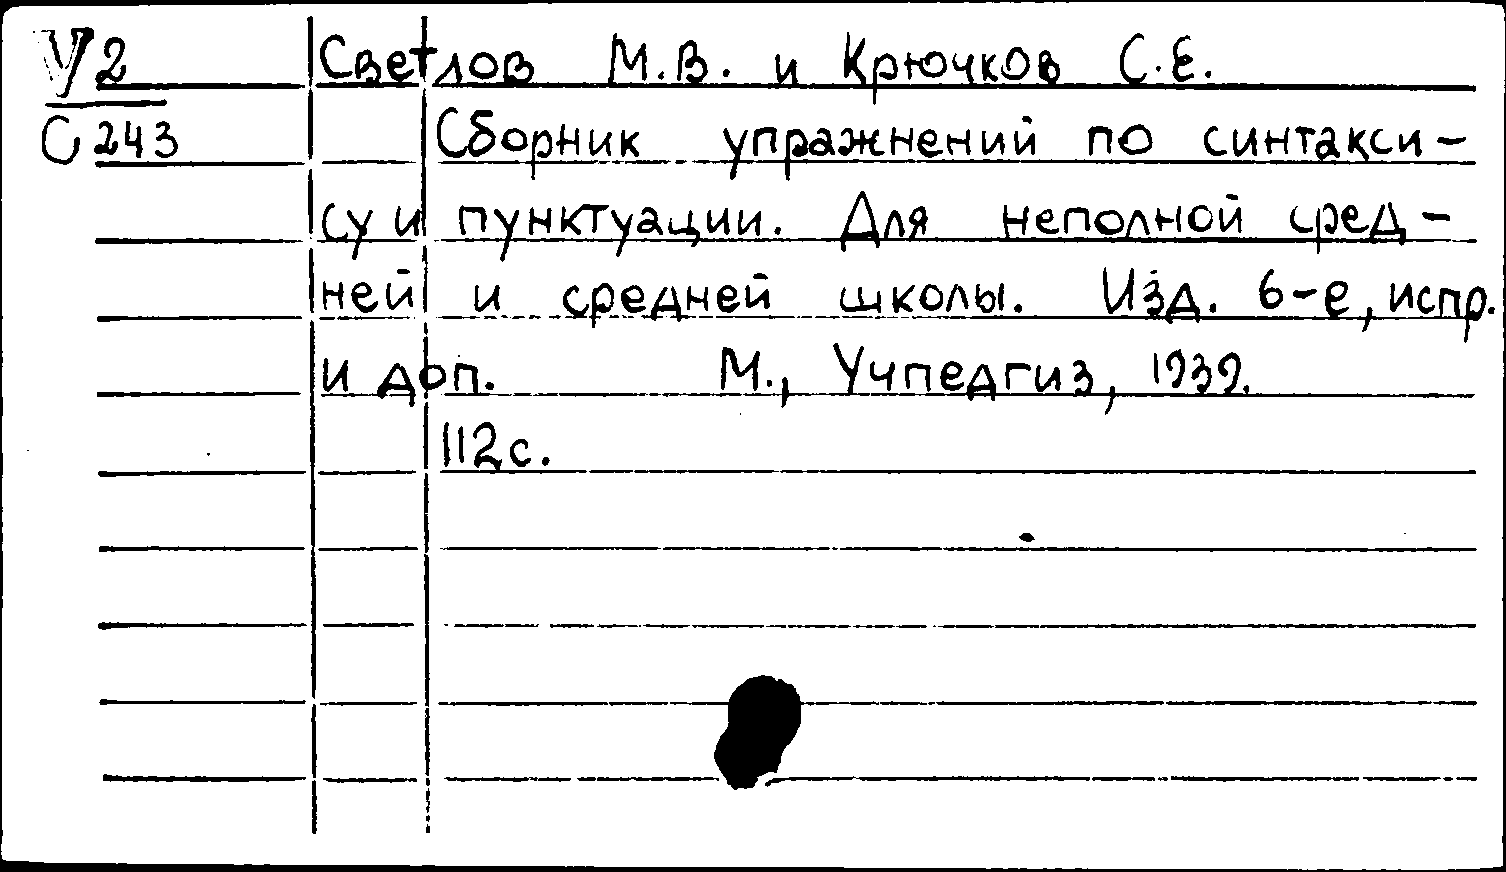 У2 Светлов М.В. и Крючков С.Е.
С 243 Сборник упражнений по синтакси-
су и пунктуации. Для неполной сред-
ней и средней школы. Изд. 6-е, испр.
и доп. М., Учпедгиз, 1939.
112с.